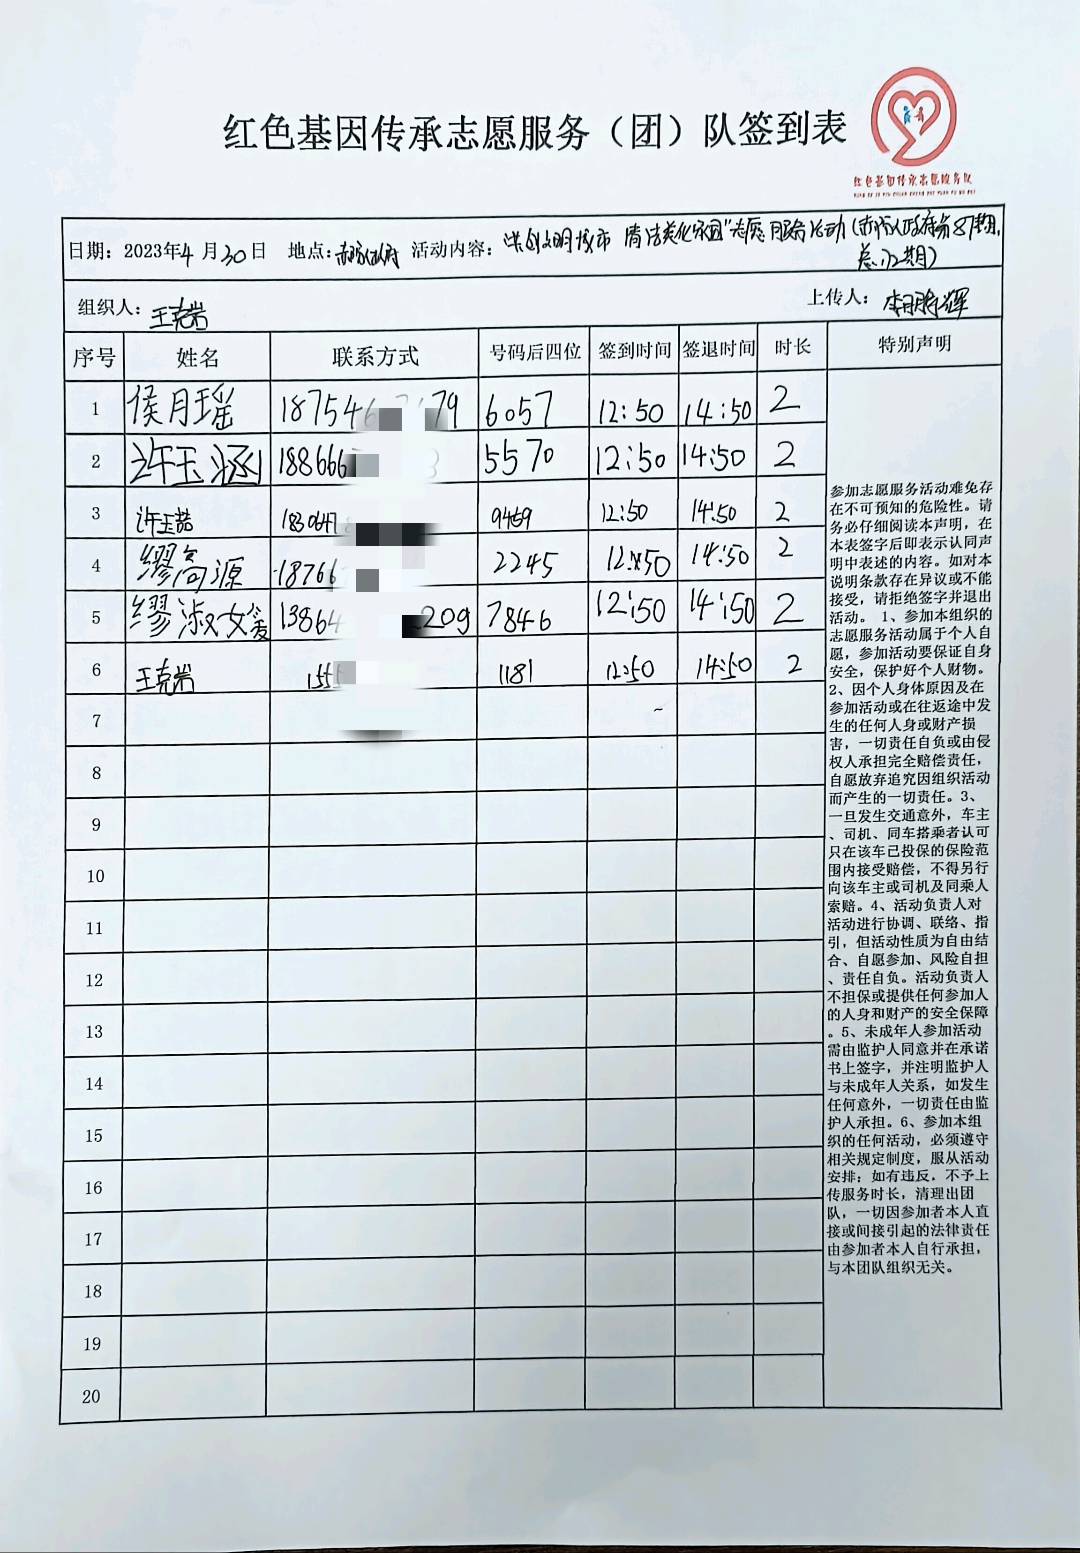 红色基因传承志愿服务（团）队签到表
红色基因传承志愿服务队
日期：2023年4月30日 地点： 活动内容：“共创文明城市 清洁美化家园”志愿服务活动（市人民政府第87期，
总172期）
组织人：王克岩 上传人：
序号 姓名 联系方式 号码后四位 签到时间 签退时间 时长 特别声明
1 侯月瑶 187546 79 6057 12:50 14:50 2
2 许玉涵 188666 3 5570 12:50 14:50 2
3 许玉喆 1830647 9469 12:50 14:50 2
4 缪高源 18766 2245 12:50 14:50 2
5 缪淑媛 13864 209 7846 12:50 14:50 2
6 王克岩 1555 1181 12:50 14:50 2
7
8
9
10
11
12
13
14
15
16
17
18
19
20
参加志愿服务活动难免存
在不可预知的危险性。请
务必仔细阅读本声明，在
本表签字后即表示认同声
明中表述的内容。如对本
说明条款存在异议或不能
接受，请拒绝签字并退出
活动。1、参加本组织的
志愿服务活动属于个人自
愿，参加活动要保证自身
安全，保护好个人财物。
2、因个人身体原因及在
参加活动或在往返途中发
生的任何人身或财产损
害，一切责任自负或由侵
权人承担完全赔偿责任，
自愿放弃追究因组织活动
而产生的一切责任。3、
一旦发生交通意外，车主
、司机、同车搭乘者认可
只在该车已投保的保险范
围内接受赔偿，不得另行
向该车主或司机及同乘人
索赔。4、活动负责人对
活动进行协调、联络、指
引，但活动性质为自由结
合、自愿参加、风险自担
、责任自负。活动负责人
不担保或提供任何参加人
的人身和财产的安全保障
。5、未成年人参加活动
需由监护人同意并在承诺
书上签字，并注明监护人
与未成年人关系，如发生
任何意外，一切责任由监
护人承担。6、参加本组
织的任何活动，必须遵守
相关规定制度，服从活动
安排；如有违反，不予上
传服务时长，清理出团
队，一切因参加者本人直
接或间接引起的法律责任
由参加者本人自行承担，
与本团队组织无关。